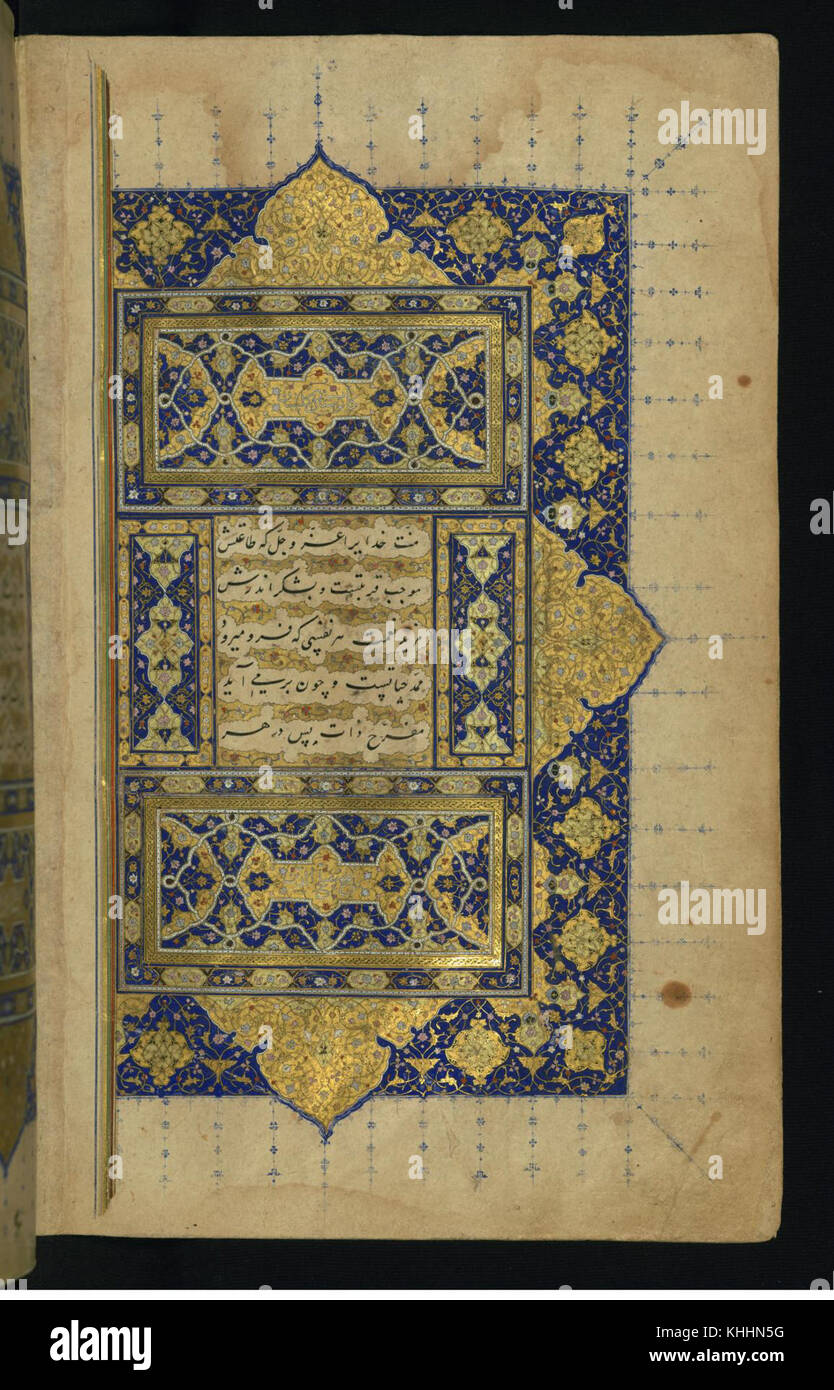 منت خدایرا عز و جل که طاعتش
موجب قربتست و بشکر اندرش
مزید نعمت هر نفسی که فرو میرود
ممد حیاتست و چون برمی آید
مفرح ذات پس در هر
alamy
Image ID: KHHN5G
www.alamy.com